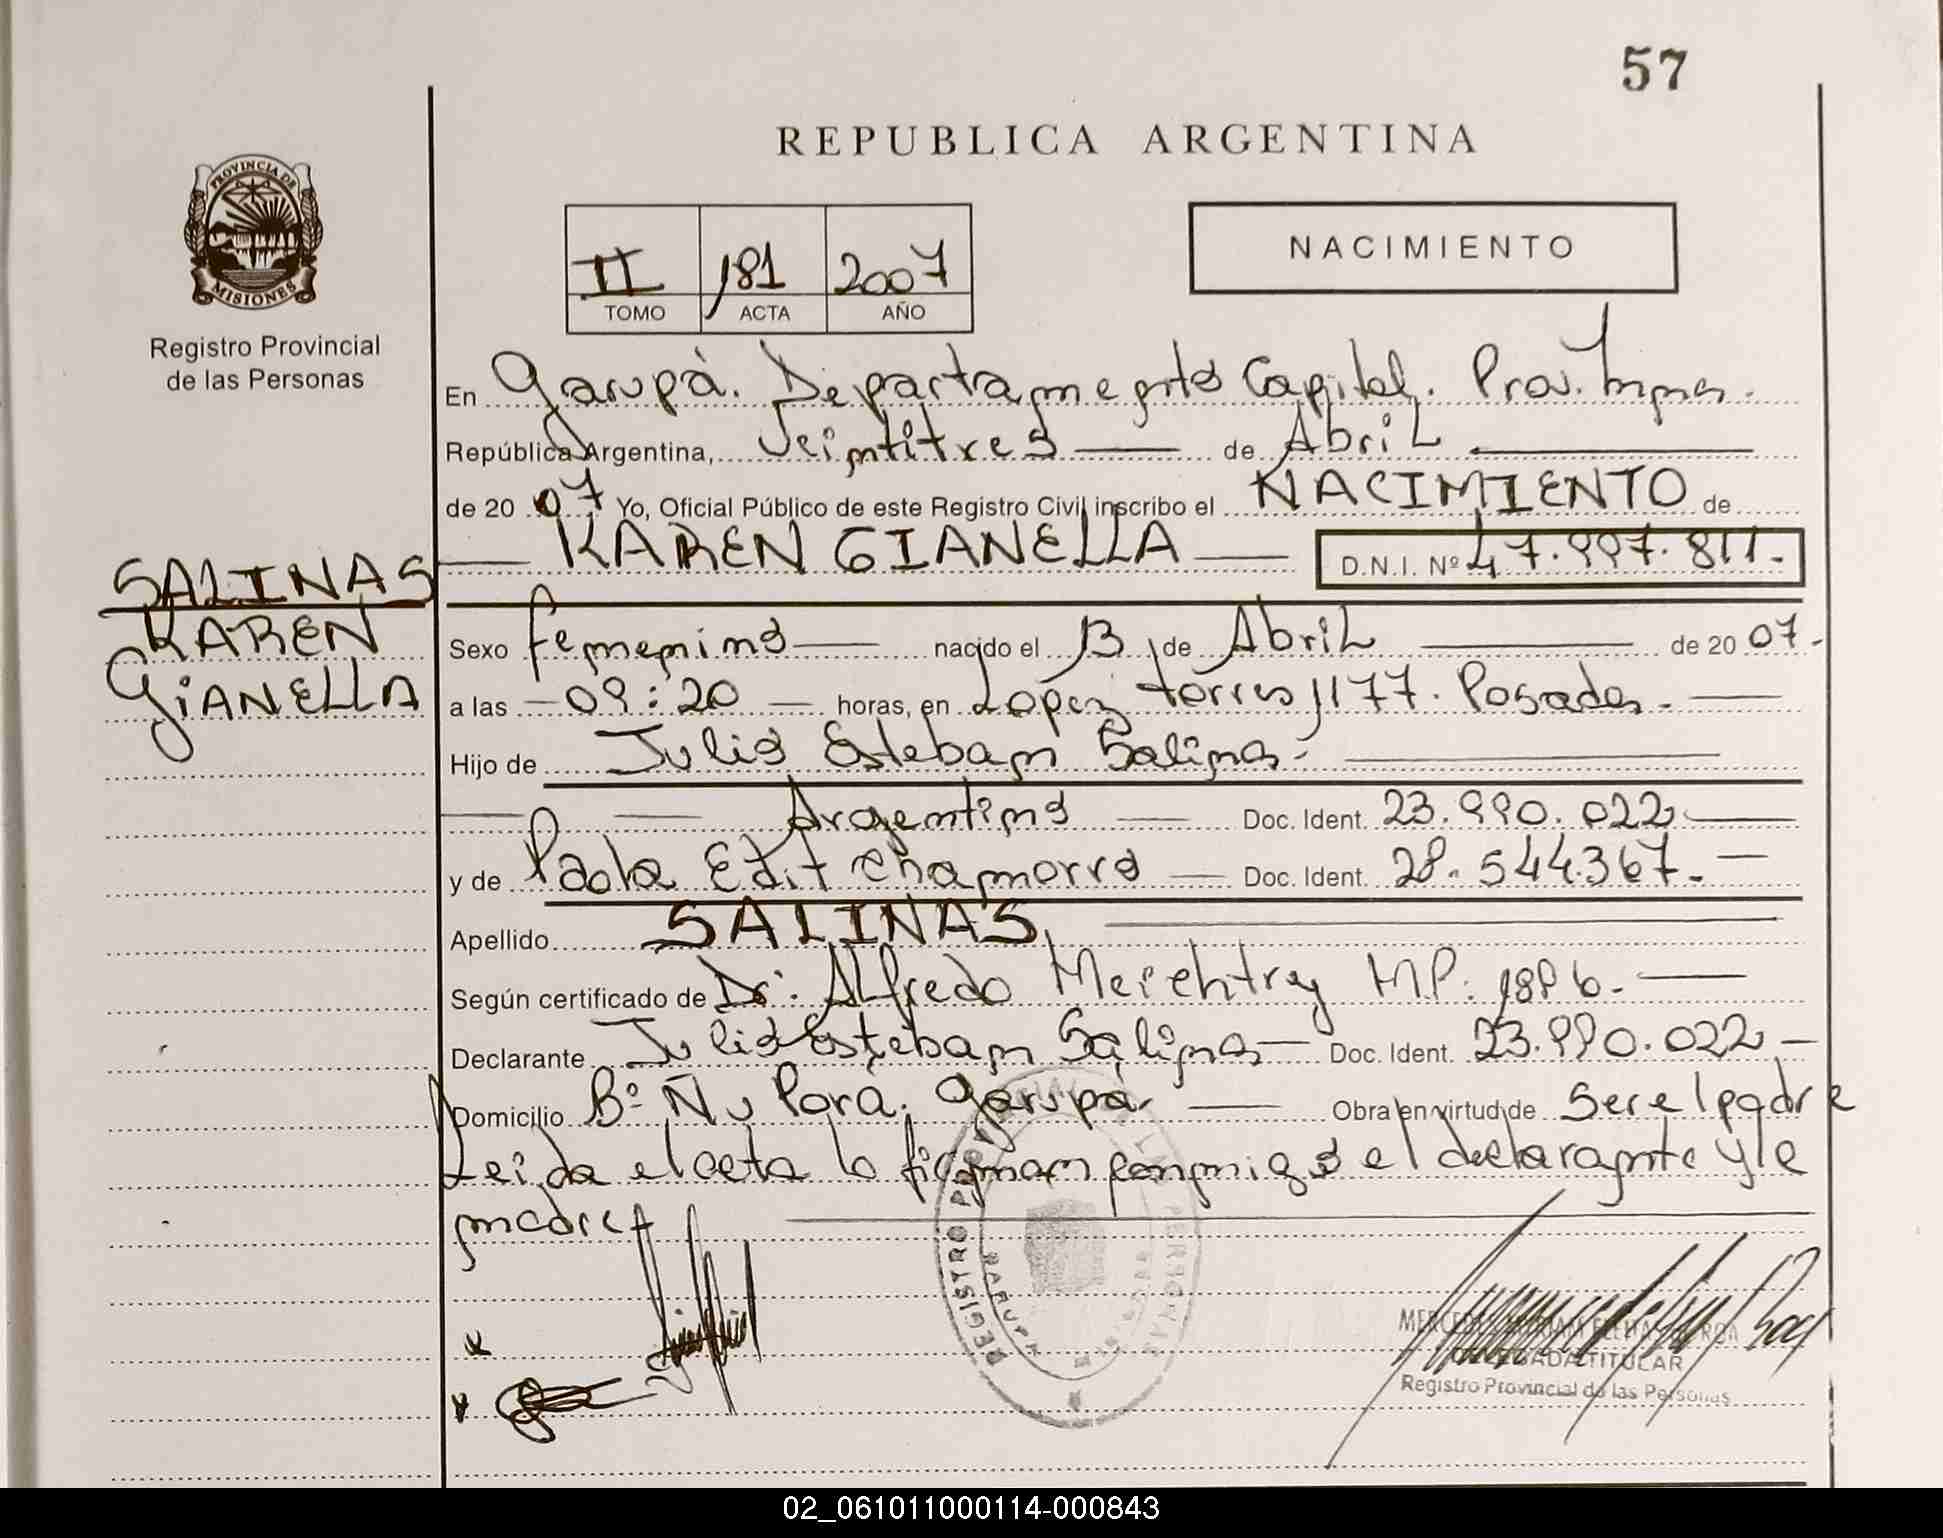 57
REPUBLICA ARGENTINA
PROVINCIA DE
MISIONES
Registro Provincial
de las Personas
II 181 2007
TOMO ACTA AÑO
NACIMIENTO
En Garupá. Departamento Capital. Prov. Mnes.
República Argentina, Veintitres de Abril
de 2007 Yo, Oficial Público de este Registro Civil inscribo el NACIMIENTO de
KAREN GIANELLA D.N.I. Nº 47.997.811.-
SALINAS
KAREN
GIANELLA
Sexo femenino nacido el 13 de Abril de 2007.-
a las - 09:20 - horas, en Lopez Torres 1177. Posadas.
Hijo de Julio Esteban Salinas.-
Argentino Doc. Ident. 23.990.022
y de Paola Edit Chamorro Doc. Ident. 28.544.367.-
Apellido SALINAS
Según certificado de Dr. Alfredo MP. 1896.-
Declarante Julio Esteban Salinas Doc. Ident. 23.990.022.-
Domicilio Bº Ñu Porá. Garupá. Obra en virtud de Ser el padre
Leida el acta la firman conmigo el declarante y la
madre
REGISTRO PROVINCIAL DE LAS PERSONAS
GARUPA
DELEGADA TITULAR
Registro Provincial de las Personas
02_061011000114-000843